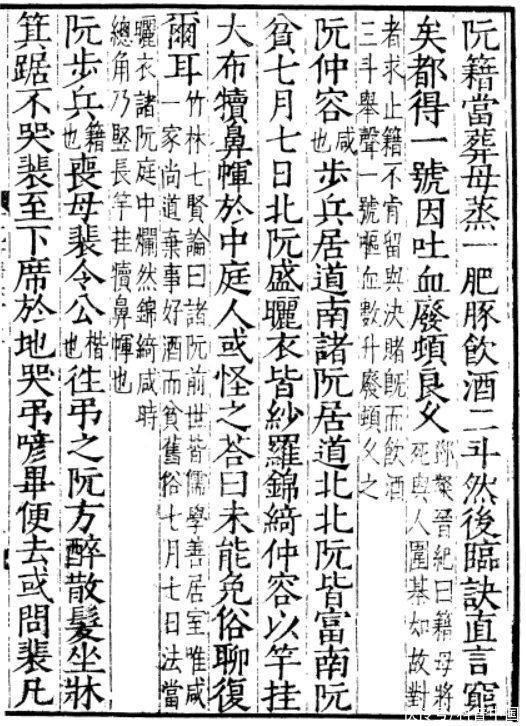 阮籍當葬母蒸一肥豚飲酒二斗然後臨訣直言窮
矣都得一號因吐血廢頓良乆鄧粲晉紀曰籍母將
死與人圍棊如故對
者求止籍不肯留與決賭旣而飲酒
三斗舉聲一號嘔血數升廢頓乆之
阮仲容咸也歩兵居道南諸阮居道北北阮皆富南阮
貧七月七日北阮盛曬衣皆紗羅錦綺仲容以竿挂
大布犢鼻㡓於中庭人或怪之荅曰未能免俗聊復
爾耳竹林七賢論曰諸阮前世皆儒學善居室唯咸
一家尚道棄事好酒而貧舊俗七月七日法當
曬衣諸阮庭中爛然錦綺咸時
總角乃竪長竿挂犢鼻㡓也
阮歩兵籍也喪母裴令公楷也徃弔之阮方醉散髮坐牀
箕踞不哭裴至下席於地哭弔喭畢便去或問裴凡